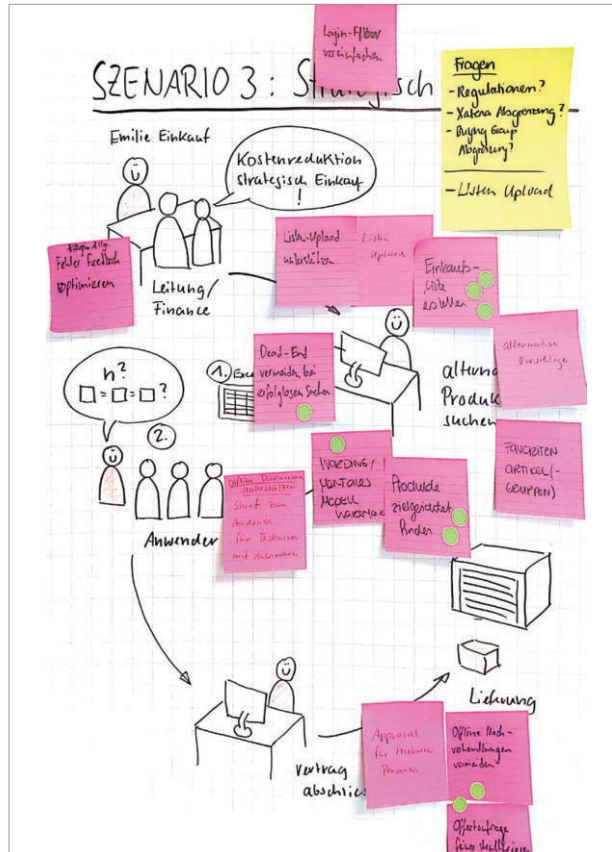 Login-Flow
vereinfachen
SZENARIO 3: Strategisch
Fragen
- Regulationen?
- Abgrenzung?
- Buying Group
Abgrenzung?
- Listen Upload
Emilie Einkauf
Kostenreduktion
strategisch Einkauf
!
Fehler Feedback
optimieren
Leitung/
Finance
Listen-Upload
unterstützen
Listen
Upload
Einkaufs-
liste
erstellen
n?
□=□=□?
1.
Dead-End
vermeiden bei
erfolglosen Suchen
Produk
suchen
alternative
Vorschläge
2.
Anwender
Offline Diskussion
für Diskussion
mit Anwendern
WORDING/
MENTALES
MODELL
Produkte
zielgerichtet
finden
FAVORITEN
ARTIKEL(-
GRUPPEN)
Lieferung
Vertrag
abschlies
Approval
für mehrere
Personen
Offline Nach-
verhandlungen
vermeiden